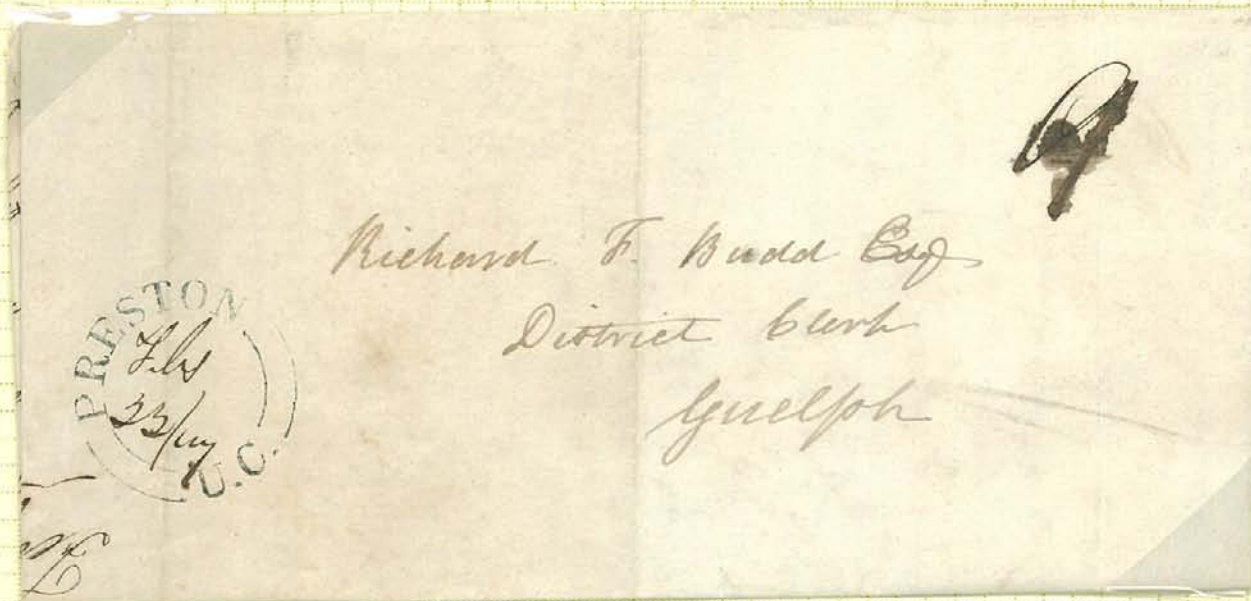 Richard F. Budd Esq
District Clerk
Guelph
PRESTON
Feb
U.C.